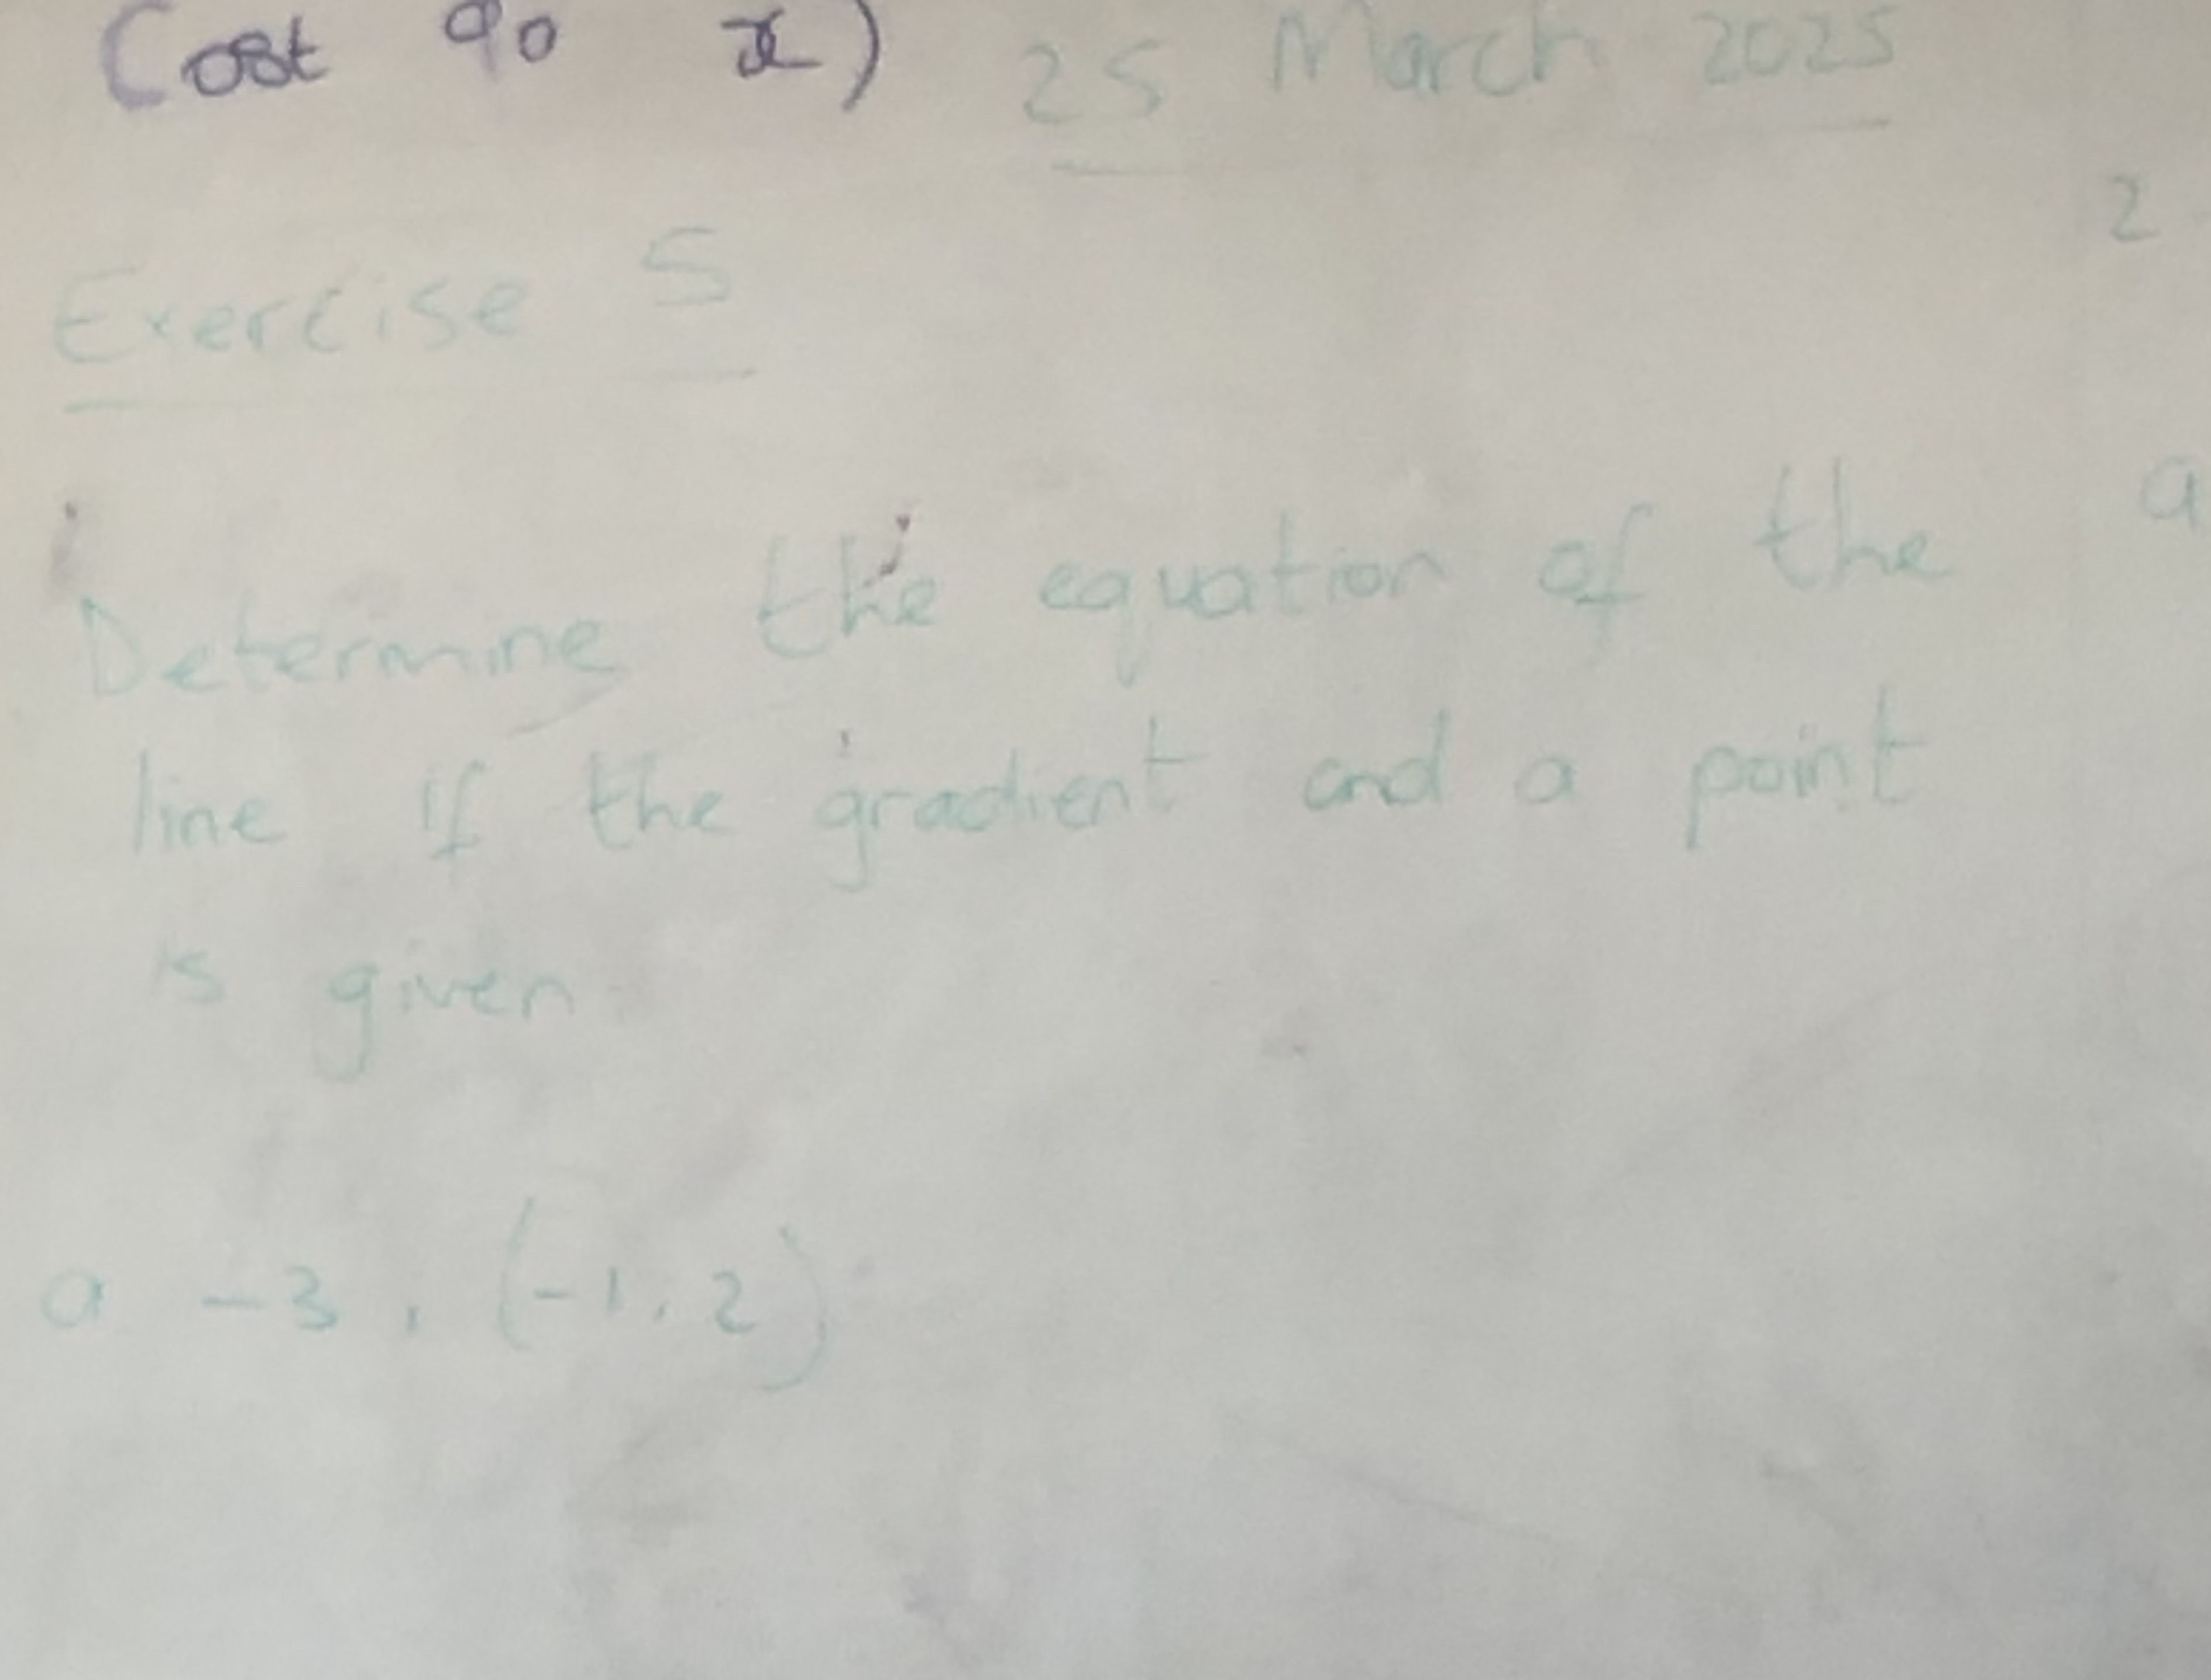 (ost 90 x) 25 March 2025
2
Exercise 5
a
Determine the equation of the
line if the gradient and a point
is given
a -3, (-1, 2)